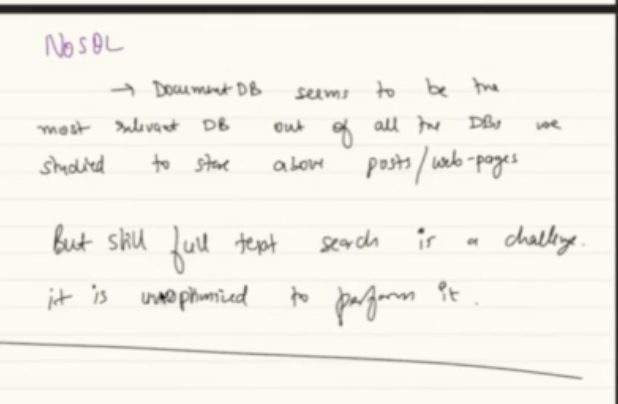 NoSQL
→ Document DB seems to be the
most relevant DB out of all the DBs we
studied to store above posts/web-pages
But still full text search is a challenge.
it is unoptimized to perform it.